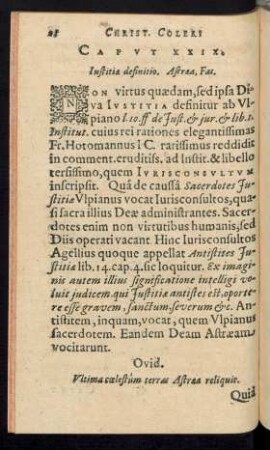 28 CHRIST. COLERI
CAPVT XXIX.
Iustitiæ definitio. Astræa, Fas.
NON virtus quædam, sed ipsa Di-
va IVSTITIA definitur ab Vl-
piano l. 10. ff de Just. & jur. & lib. 1.
Institut. cuius rei rationes elegantissimas
Fr. Hotomannus IC. rarissimus reddidit
in comment. eruditiss. ad Instit. & libello
tersissimo, quem IVRISCONSVLTVM
inscripsit. Quâ de caussâ Sacerdotes Ju-
stitiæ Vlpianus vocat Iurisconsultos, qua-
si sacra illius Deæ administrantes. Sacer-
dotes enim non virtutibus humanis, sed
Diis operati vacant Hinc Iurisconsultos
Agellius quoque appellat Antistites Ju-
stitiæ lib. 14. cap. 4. sic loquitur. Ex imagi-
nis autem illius significatione intelligi vo-
luit judicem, qui Justitiæ antistes est, oporte-
re esse gravem, sanctum, severum &c. An-
tistitem, inquam, vocat, quem Vlpianus
sacerdotem. Eandem Deam Astræam
vocitarunt.
Ovid.
Vltima cœlestûm terras Astræa reliquit.
Quid